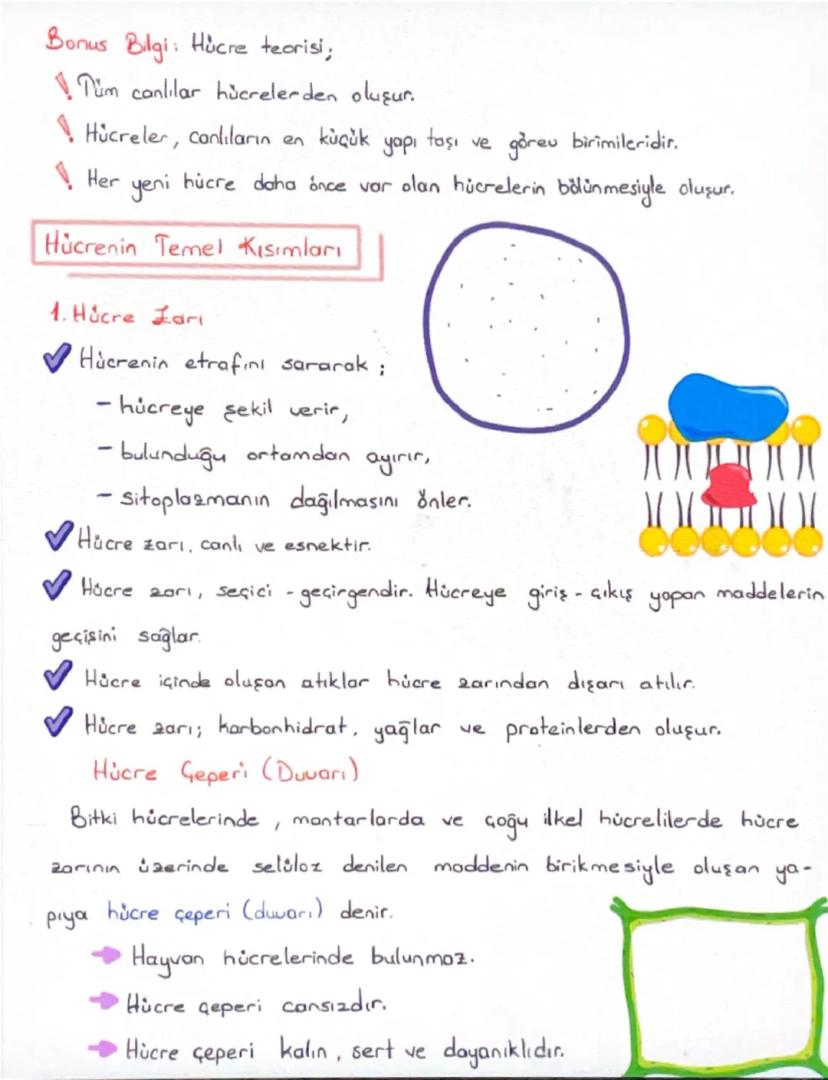 Bonus Bilgi: Hücre teorisi;
! Tüm canlılar hücrelerden oluşur.
! Hücreler, canlıların en küçük yapı taşı ve görev birimileridir.
! Her yeni hücre daha önce var olan hücrelerin bölünmesiyle oluşur.
Hücrenin Temel Kısımları
1. Hücre Zarı
✓ Hücrenin etrafını sararak;
- hücreye şekil verir,
- bulunduğu ortamdan ayırır,
- sitoplazmanın dağılmasını önler.
✓ Hücre zarı, canlı ve esnektir.
✓ Hücre zarı, seçici - geçirgendir. Hücreye giriş - çıkış yapan maddelerin
geçişini sağlar.
✓ Hücre içinde oluşan atıklar hücre zarından dışarı atılır.
✓ Hücre zarı; karbonhidrat, yağlar ve proteinlerden oluşur.
Hücre Çeperi (Duvarı)
Bitki hücrelerinde, mantarlarda ve çoğu ilkel hücrelilerde hücre
zarının üzerinde selüloz denilen maddenin birikmesiyle oluşan ya-
pıya hücre çeperi (duvarı) denir.
→ Hayvan hücrelerinde bulunmaz.
→ Hücre çeperi cansızdır.
→ Hücre çeperi kalın, sert ve dayanıklıdır.